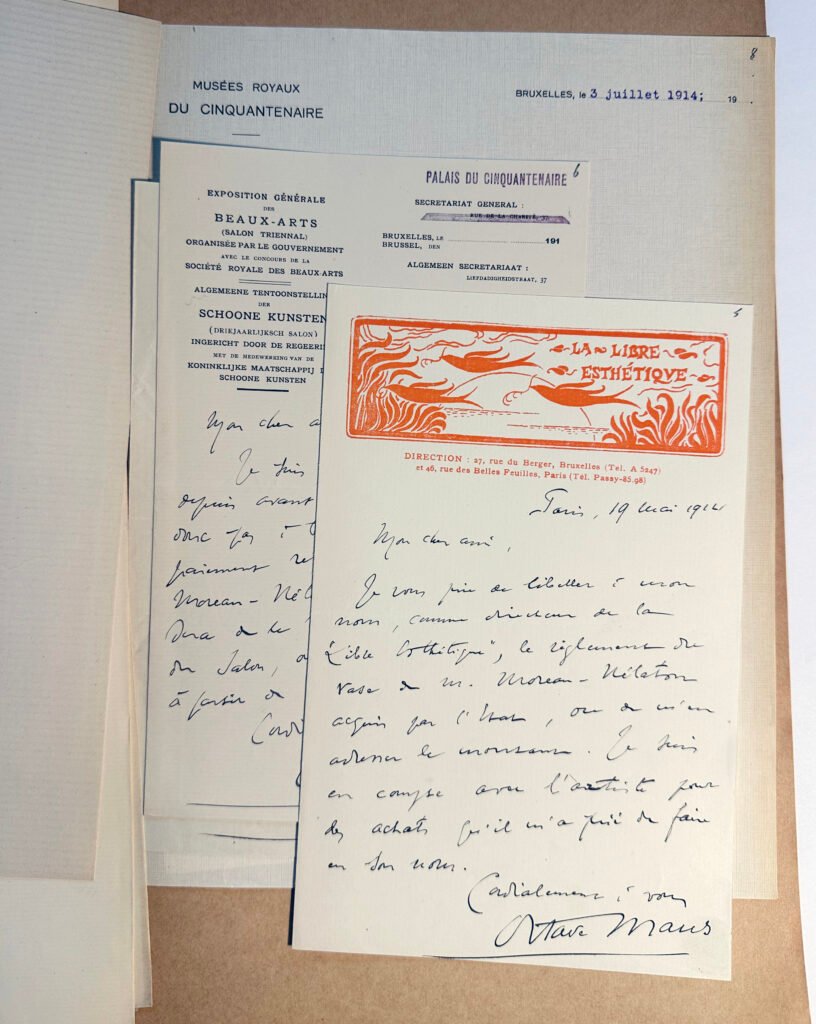 8
MUSÉES ROYAUX
DU CINQUANTENAIRE
BRUXELLES, le 3 juillet 1914; 19
PALAIS DU CINQUANTENAIRE
6
EXPOSITION GÉNÉRALE
DES
BEAUX-ARTS
(SALON TRIENNAL)
ORGANISÉE PAR LE GOUVERNEMENT
AVEC LE CONCOURS DE LA
SOCIÉTÉ ROYALE DES BEAUX-ARTS
ALGEMEENE TENTOONSTELLIN
DER
SCHOONE KUNSTEN
(DRIEJAARLIJKSCH SALON)
INGERICHT DOOR DE REGEERI
MET DE MEDEWERKING VAN DE
KONINKLIJKE MAATSCHAPPIJ D
SCHOONE KUNSTEN
SECRETARIAT GENERAL :
RUE DE LA CHARITÉ, 37
BRUXELLES, LE
BRUSSEL, DEN
191
ALGEMEEN SECRETARIAAT :
LIEFDADIGHEIDSTRAAT, 37
Mon cher a
Je suis
depuis avant
donc pas à
paiement
Moreau-Nél
sera de
du Salon, ou
à partir de
Cordi
5
LA LIBRE
ESTHÉTIQVE
DIRECTION : 27, rue du Berger, Bruxelles (Tel. A 5247)
et 46, rue des Belles Feuilles, Paris (Tél. Passy-85.98)
Paris, 19 mai 1914
Mon cher ami,
Je vous prie de libeller à mon
nom, comme directeur de la
"Libre Esthétique", le règlement du
vase de M. Moreau-Nélaton
acquis par l'Etat, ou de m'en
adresser le montant. Je suis
en compte avec l'artiste pour
des achats qu'il m'a prié de faire
en son nom.
Cordialement à vous
Octave Maus